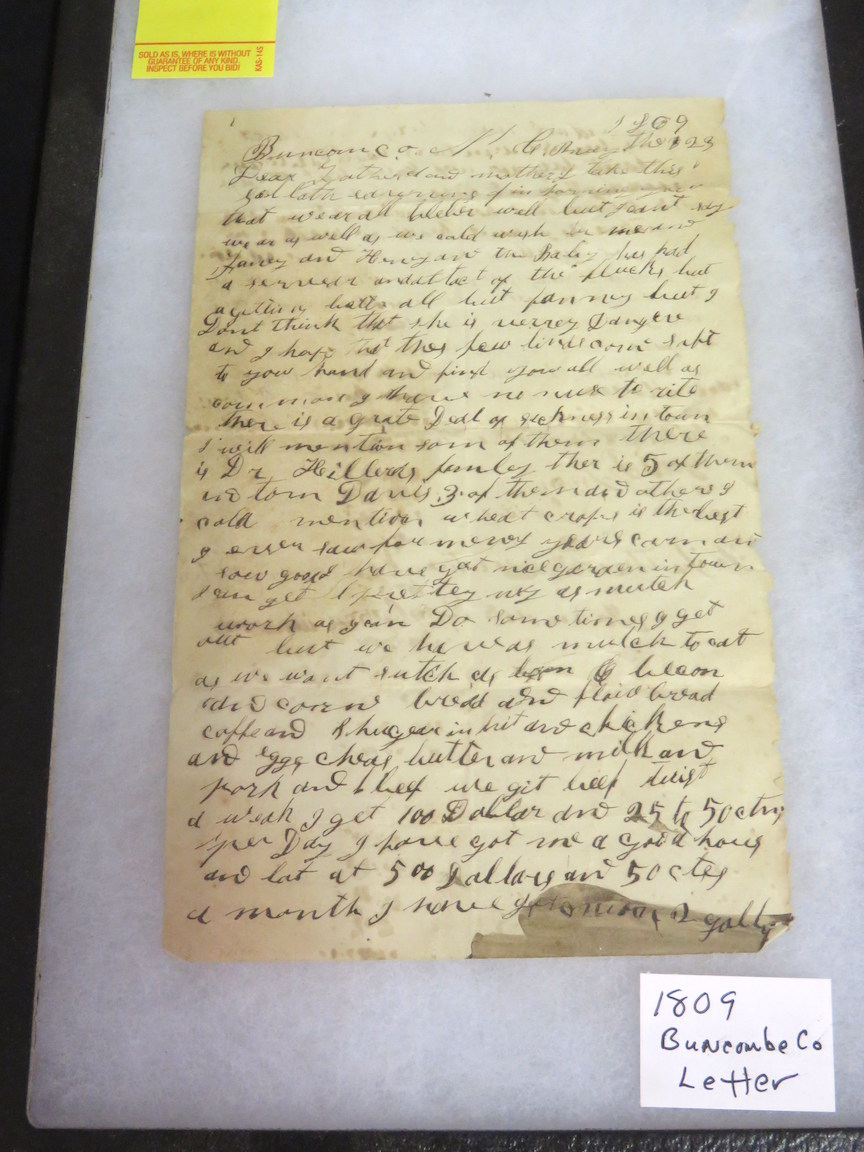 SOLD AS IS, WHERE IS WITHOUT
GUARANTEE OF ANY KIND.
INSPECT BEFORE YOU BID!
KAS-145
1809
Buncom Co. N. C. the 23
Dear Father and mother I take this
in
that we ar all well but I cant say
we ar as well as we cold wish me and
Fanny and Henry and the Baby has had
a of the flucks but
a gitting all but fanny but I
Dont think that she is verrey
and I hope that thes few lines com saft
to your hand and find you all well as
common I have no nuse to rite
ther is a grate Deal of sickness in town
I will mention som of them there
is Dr. Hilleds family ther is 5 of them
and tom Davis 3 of them and others I
cold mention wheat crops is the best
I ever saw for meney years corn is
good have got nice garden in town
I can get prettey as mutch
work as I can Do some times I get
out but we have as mutch to eat
as we want sutch as bacon
and corn bread and bread
coffe and Shugar and chickens
and eggs cheas butter and milk and
pork and beef we git beef twist
a weak I get 100 Dollar and 25 to 50 cts
per Day I have got me a good hous
and lot at 500 Dollars and 50 ctes
a month I have 2
1809
Buncombe Co
Letter